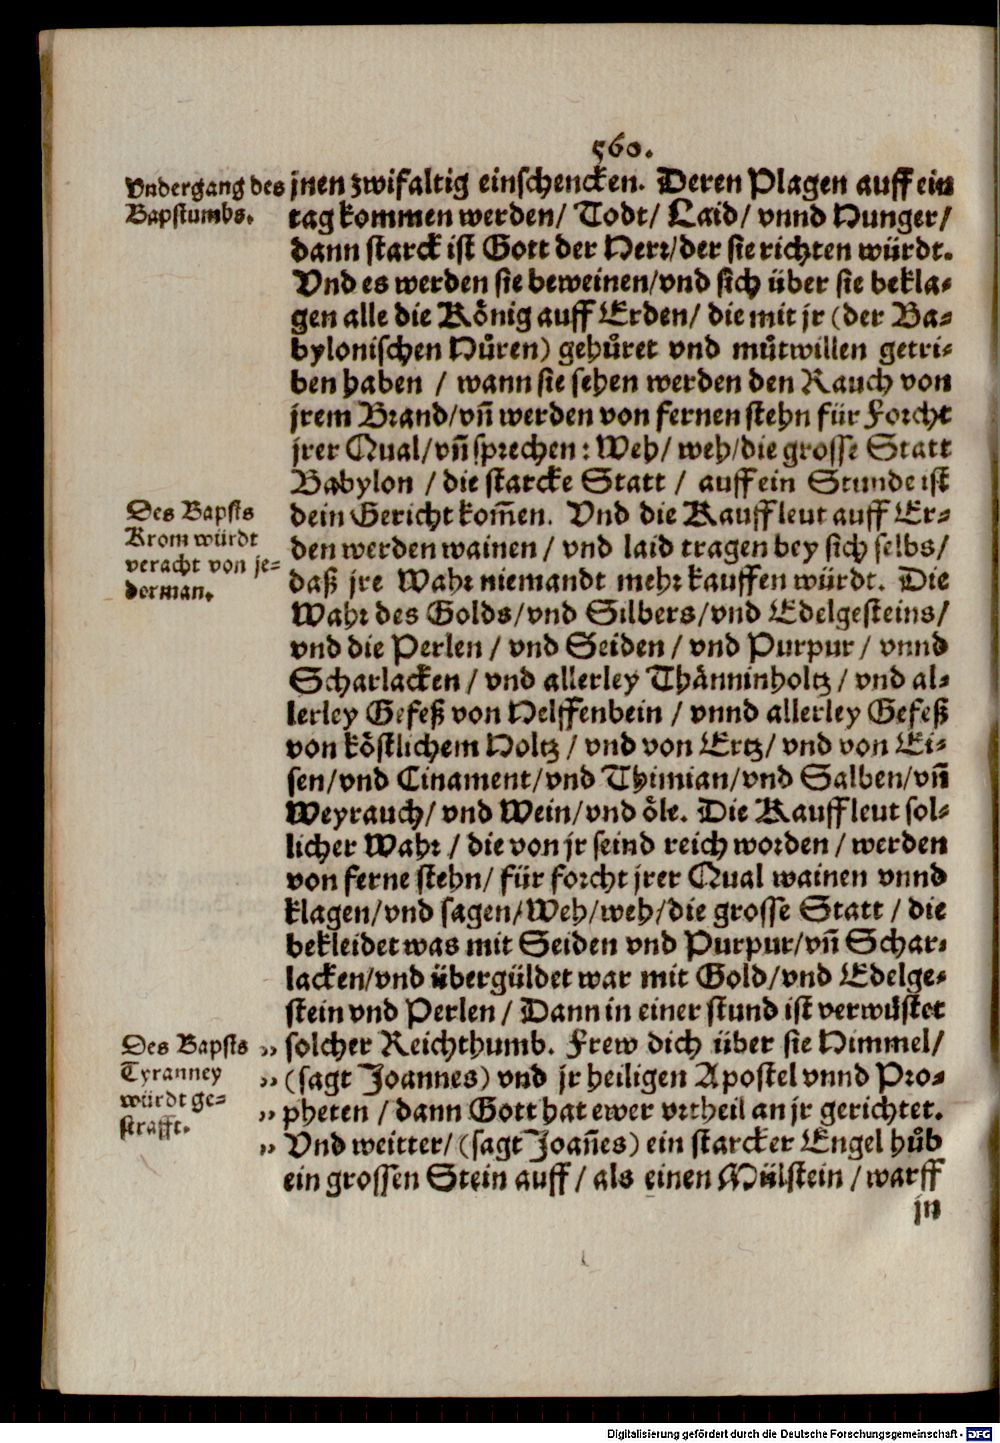 560.
Vndergang des
Bapstumbs.
jnen zwifaltig einschencken. Deren Plagen auff ein
tag kommen werden/ Todt/ Laid/ vnnd Hunger/
dann starck ist Gott der Herr/der sie richten würdt.
Vnd es werden sie beweinen/vnd sich über sie bekla-
gen alle die Koͤnig auff Erden/ die mit jr (der Ba-
bylonischen Huͦren) gehuͦret vnd muͦtwillen getri-
ben haben / wann sie sehen werden den Rauch von
jrem Brand/vn̄ werden von fernen stehn für Forcht
jrer Qual/vn̄ sprechen: Weh/ weh/die grosse Statt
Babylon / die starcke Statt / auff ein Stunde ist
Des Bapsts
Krom würdt
veracht von je-
derman.
dein Gericht kom̄en. Vnd die Kauffleut auff Er-
den werden wainen / vnd laid tragen bey sich selbs/
daß jre Wahr niemandt mehr kauffen würdt. Die
Wahr des Golds/vnd Silbers/vnd Edelgesteins/
vnd die Perlen / vnd Seiden / vnd Purpur / vnnd
Scharlacken / vnd allerley Thaͤnninholtz / vnd al-
lerley Gefeß von Helffenbein / vnnd allerley Gefeß
von koͤstlichem Holtz / vnd von Ertz/ vnd von Ei-
sen/vnd Cinament/vnd Thimian/vnd Salben/vn̄
Weyrauch/ vnd Wein/vnd oͤle. Die Kauffleut sol-
licher Wahr / die von jr seind reich worden / werden
von ferne stehn/ für forcht jrer Qual wainen vnnd
klagen/vnd sagen/Weh/weh/die grosse Statt / die
bekleidet was mit Seiden vnd Purpur/vn̄ Schar-
lacken/vnd übergüldet war mit Gold/vnd Edelge-
stein vnd Perlen / Dann in einer stund ist verwüstet
Des Bapsts
Tyranney
würdt ge-
strafft.
„ solcher Reichthumb. Frew dich über sie Himmel/
„ (sagt Joannes) vnd jr heiligen Apostel vnnd Pro-
„ pheten / dann Gott hat ewer vrtheil an jr gerichtet.
„ Vnd weitter/ (sagt Joan̄es) ein starcker Engel huͦb
ein grossen Stein auff / als einen Mülstein / warff
jn
Digitalisierung gefördert durch die Deutsche Forschungsgemeinschaft - DFG